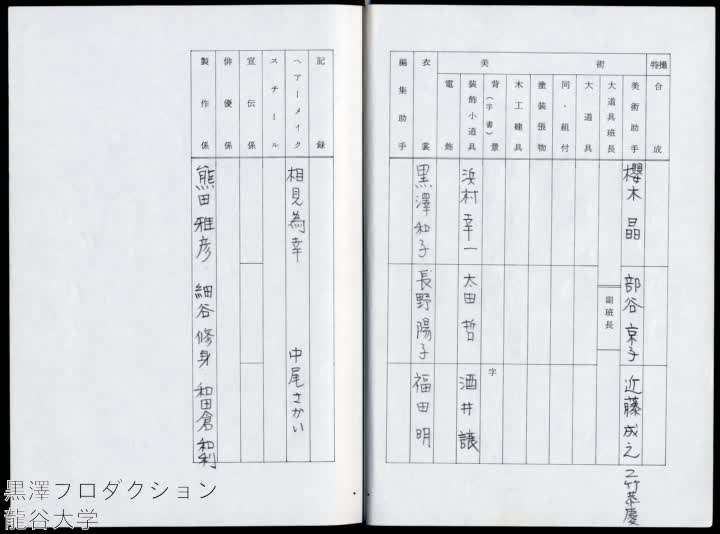 特撮
合成
美術
美術助手
櫻木 晶
部谷 京子
近藤 成之
二竹 恭慶
大道具班長
副班長
大道具
同・組付
塗装張物
木工建具
背(字書)景
字
装飾小道具
浜村 幸一
太田 哲
酒井 譲
電飾
衣裳
黒澤 和子
長野 陽子
福田 明
編集助手
記録
ヘアーメイク
相見 為幸
中尾 さかい
スチール
宣伝係
俳優係
製作係
熊田 雅彦
細谷 修身
和田倉 和利
黒澤プロダクション
龍谷大学